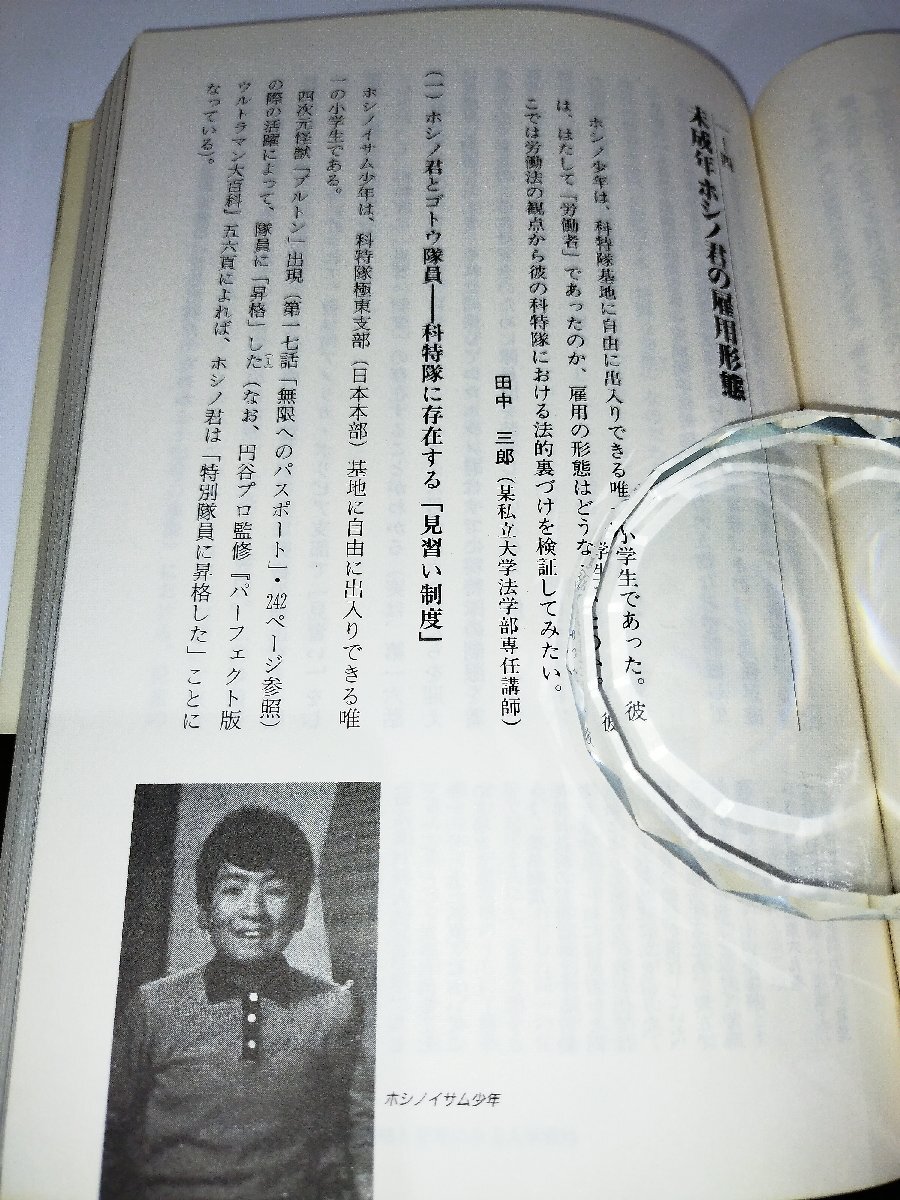 未成年ホシノ君の雇用形態
ホシノ少年は、科特隊基地に自由に出入りできる唯一小学生であった。彼
は、はたして「労働者」であったのか、雇用の形態はどうな
こでは労働法の観点から彼の科特隊における法的裏づけを検証してみたい。
田中 三郎(某私立大学法学部専任講師)
(一) ホシノ君とゴトウ隊員――科特隊に存在する「見習い制度」
ホシノイサム少年は、科特隊極東支部(日本本部)基地に自由に出入りできる唯
一の小学生である。
四次元怪獣「ブルトン」出現(第一七話「無限へのパスポート」・242ページ参照)
の際の活躍によって、隊員に「昇格」した(1)(なお、円谷プロ監修『パーフェクト版
ウルトラマン大百科』五六頁によれば、ホシノ君は「特別隊員に昇格した」ことに
なっている)。
ホシノイサム少年